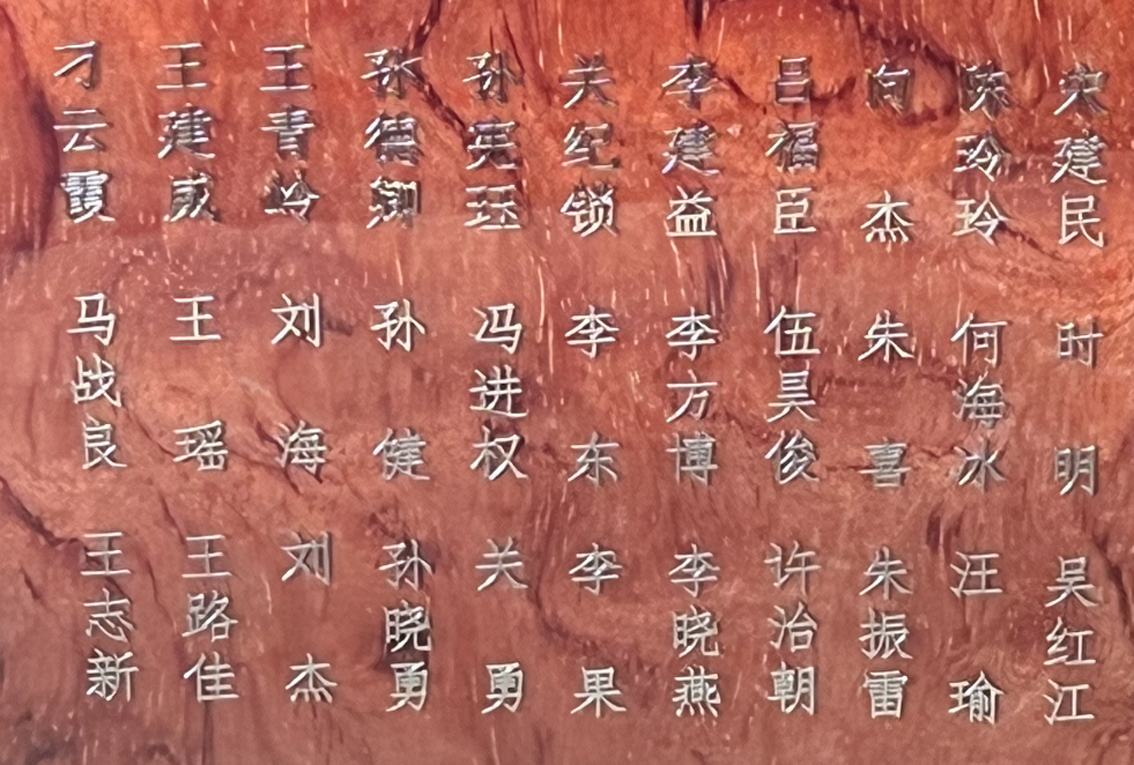 刁云霞
马战良
王志新
王建威
王瑶
王路佳
王青岭
刘海
刘杰
孙德卿
孙健
孙晓勇
孙宪珏
冯进权
关勇
关纪锁
李东
李果
李建益
李方博
李晓燕
吕福臣
伍昊俊
许治朝
向杰
朱喜
朱振雷
陈玲玲
何海冰
汪瑜
宋建民
时明
吴红江